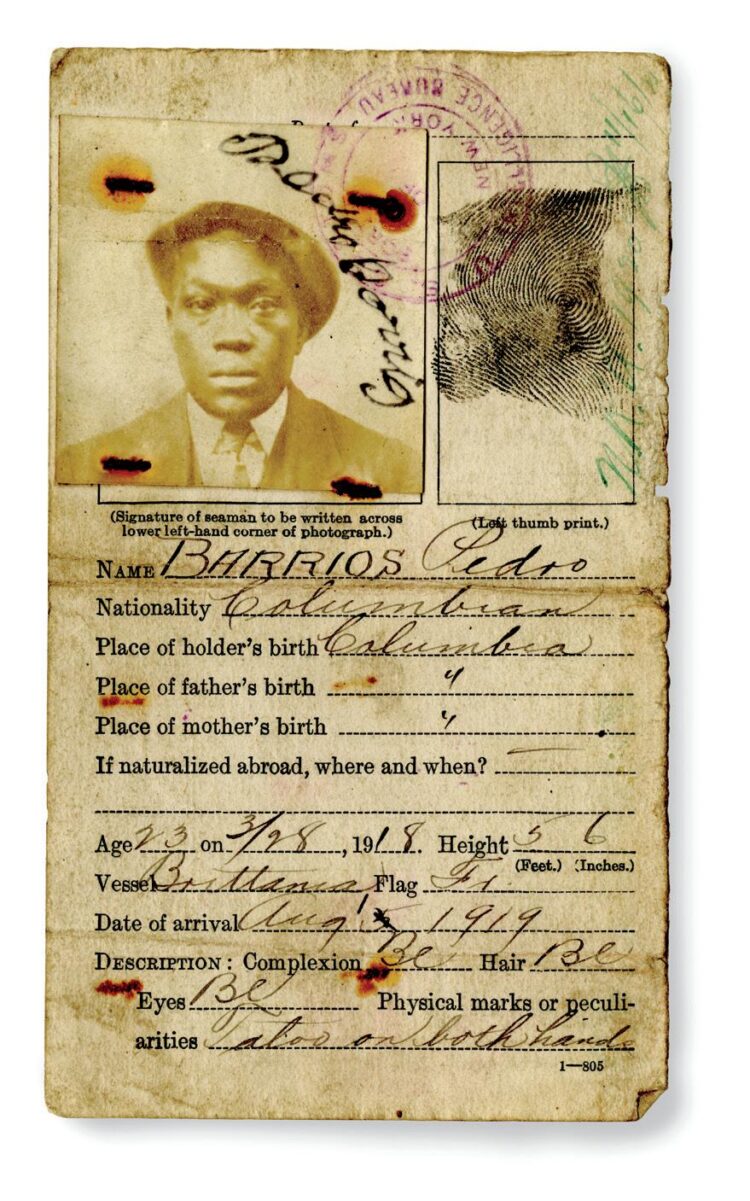 Port of
INTELLIGENCE BUREAU
NEW YORK
Pedro Barrios
(Signature of seaman to be written across
lower left-hand corner of photograph.)
(Left thumb print.)
NAME BARRIOS Pedro
Nationality Columbian
Place of holder's birth Columbia
Place of father's birth "
Place of mother's birth "
If naturalized abroad, where and when? —
Age 23 on 3/28, 1918. Height 5 6
(Feet.) (Inches.)
Vessel Brittania Flag Fr
Date of arrival Aug 1919
DESCRIPTION: Complexion Bl Hair Bl
Eyes Bl Physical marks or peculi-
arities Tatoo on both hands
1—805